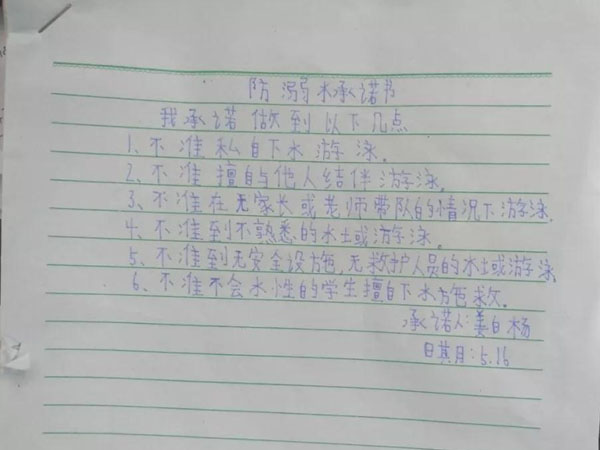 防溺水承诺书
我承诺做到以下几点
1、不准私自下水游泳.
2、不准擅自与他人结伴游泳.
3、不准在无家长或老师带队的情况下游泳.
4、不准到不熟悉的水土或游泳.
5、不准到无安全设施,无救护人员的水土或游泳
6、不准不会水性的学生擅自下水施救.
承诺人:姜白杨
日其月:5.16